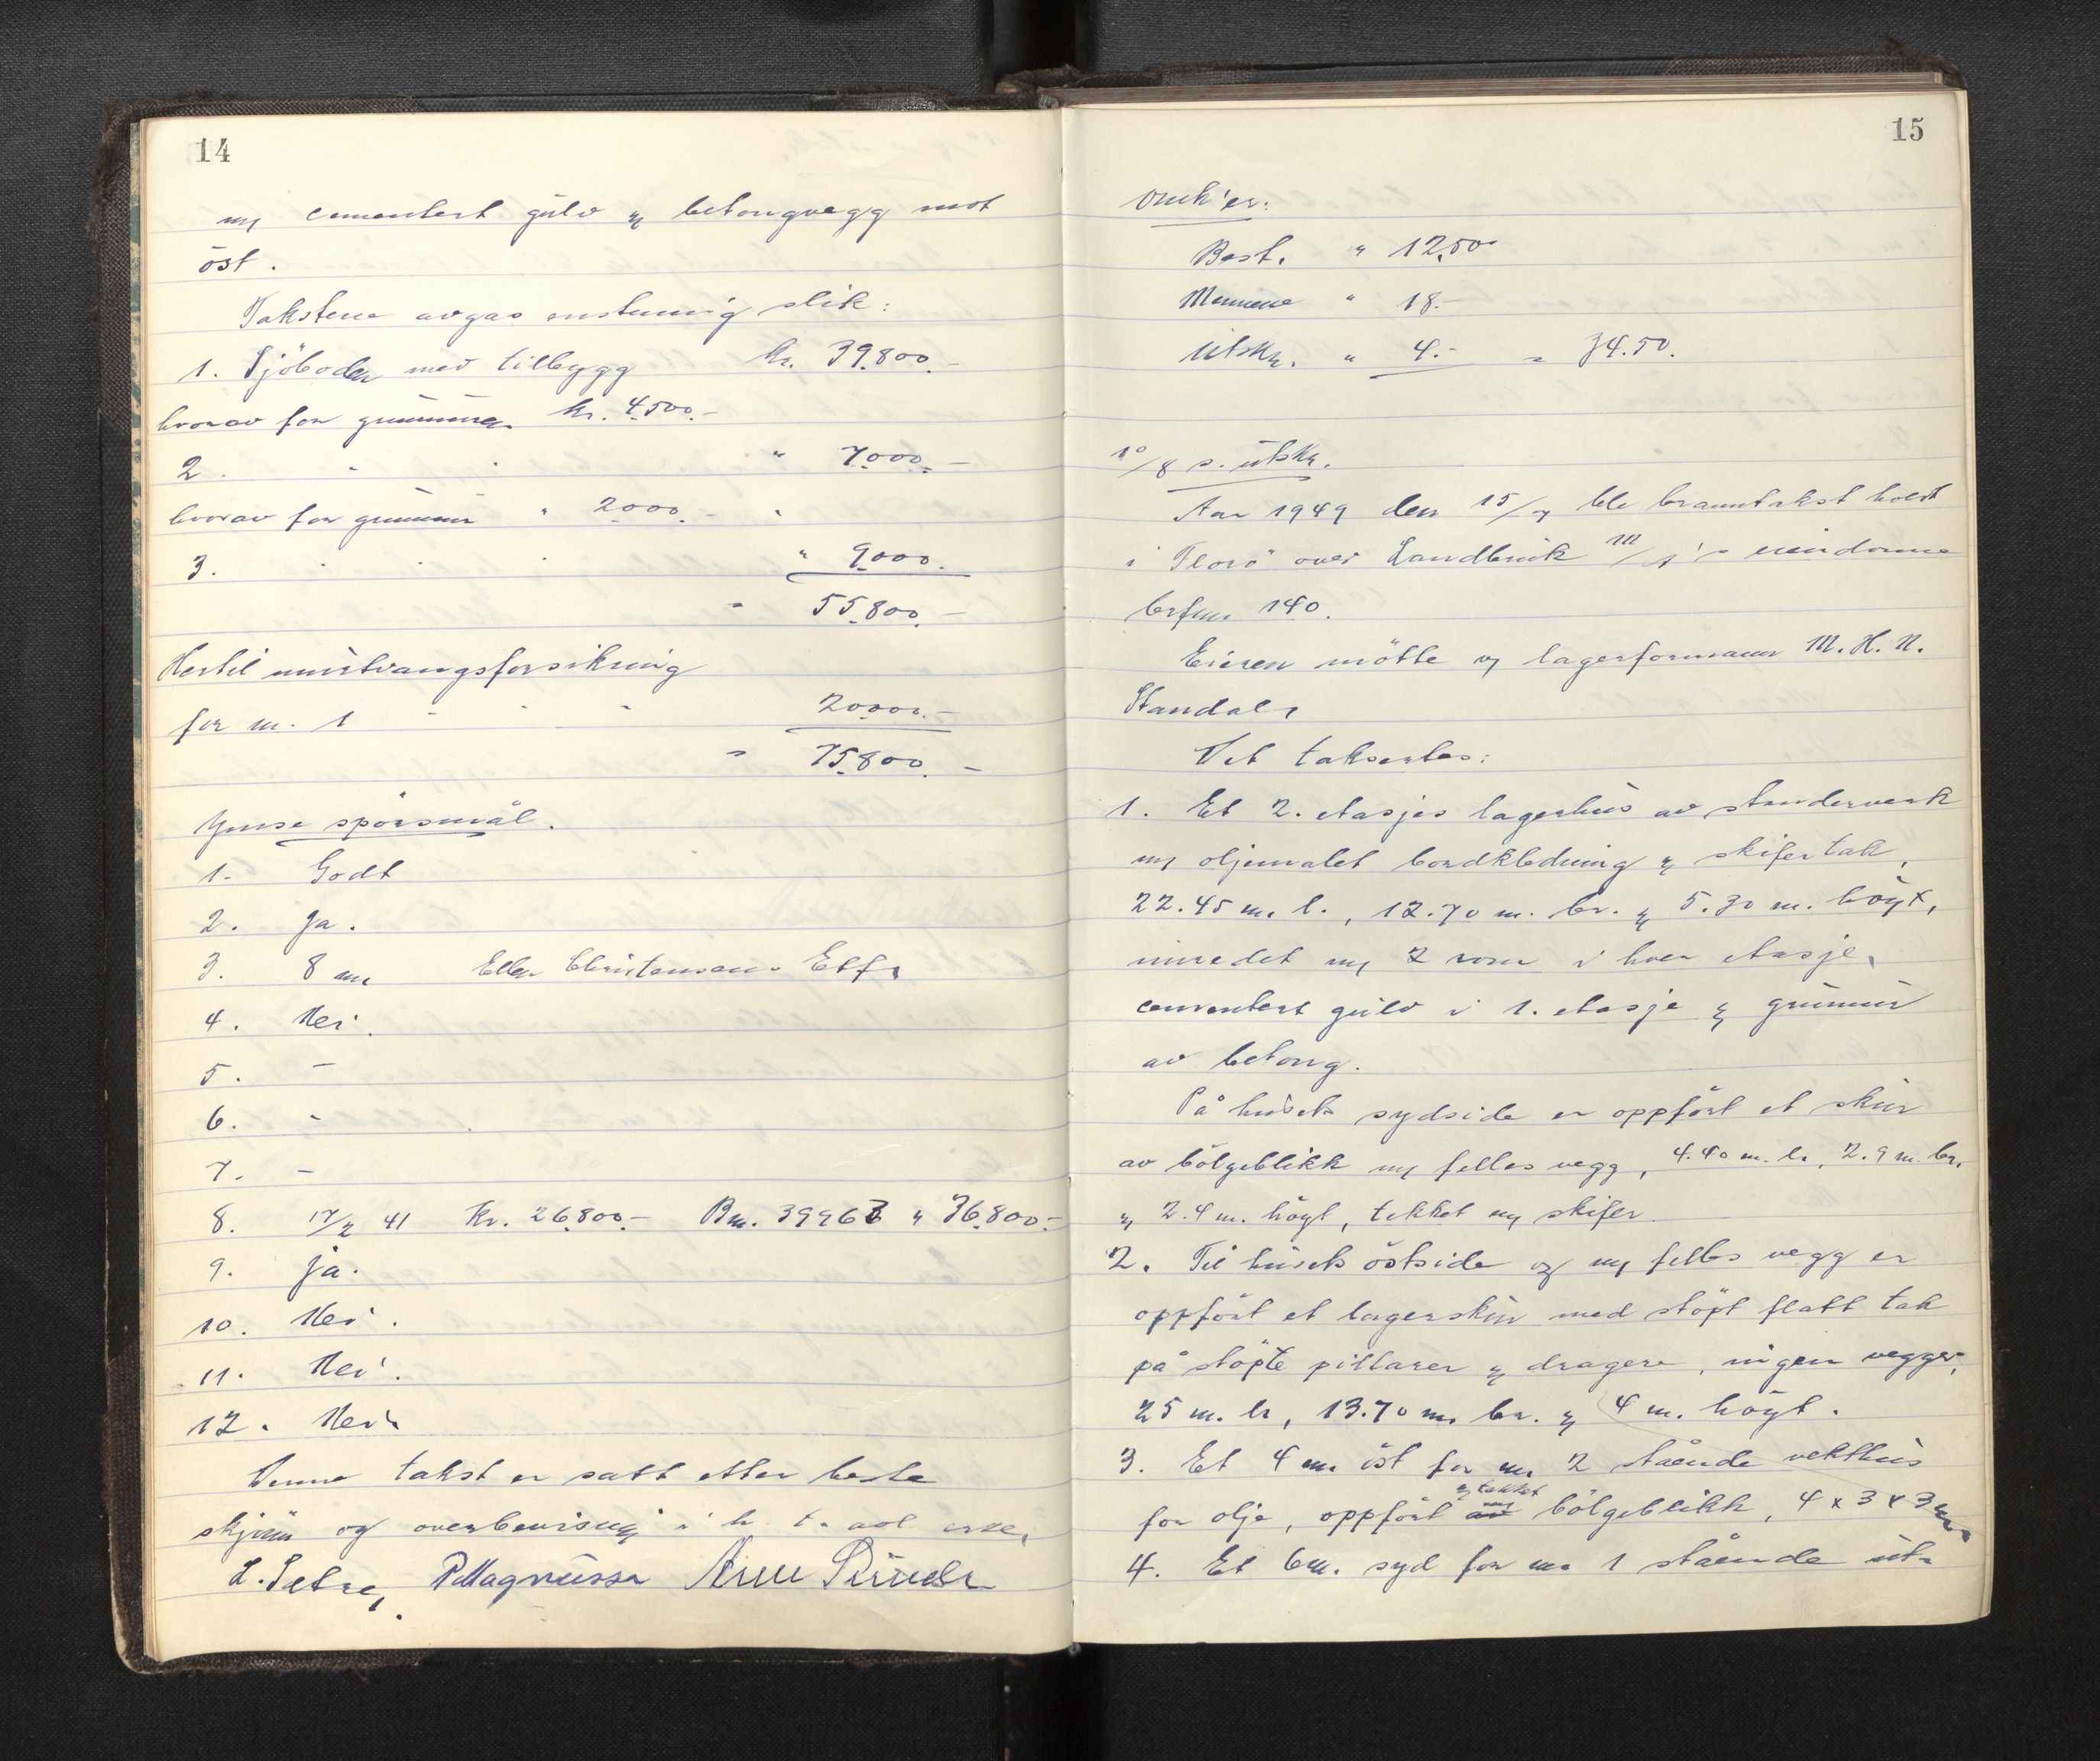 14
m/ cementert gulv & betongvegg mot
öst.
Takstene avgas enstemmig slik:
1. Sjöboden med tilbygg kr. 39.800.-
hvorav for grunnmur kr. 4.500.-
2. " " " 7.000.-
hvorav for grunnmur " 2000.- "
3. " " " " 9.000.
" 55.800.-
Hertil
for nr. 1 - - - 20000.-
= 75.800.-
Ymse spörsmål.
1. Godt
2. Ja.
3. 8 m Christensens Eftf.
4. Nei.
5. -
6. -
7. -
8. 17/2 41 Kr. 26.800.- Br. 39963 " 36.800.-
9. Ja.
10. Nei.
11. Nei.
12. Nei.
Denne takst er satt etter beste
skjönn og overbevisning i h. t. avl. ed.
L. Sætre, P Magnussen
15
Omk'er:
Best. " 12,50
Mennene " 18.-
Utskr. " 4.- = 34.50.
10/8 s. utskr.
Aar 1949 den 15/7 ble branntakst holdt
i Florö over Landbruk eiendomme
brfnr. 140.
Eieren mötte v/ lagerformann M. H. N.
Standal.
Det taksertes:
1. Et 2. etasjes lagerhus av stenderverk
m/ oljemalet bordkledning & skifertak,
22.45 m. l., 12.70 m. br. & 5.30 m. höyt,
innredet m/ 2 rom i hver etasje,
cementert gulv i 1. etasje & grunnmur
av betong.
På husets sydside er oppfört et skur
av bölgeblikk m/ felles vegg, 4.40 m. l., 2.9 m. br.
& 2.4 m. höyt, tekket m/ skifer.
2. Til husets östside og m/ felles vegg er
oppfört et lagerskur med stöpt flatt tak
på stöpte pillarer & dragere, ingen vegger,
25 m. l., 13.70 m. br. & 4 m. höyt.
3. Et 4 m. öst for nr. 2 stående vekthus
for olje, oppfört & tekket m/ bölgeblikk, 4 x 3 x 3 m.
4. Et 6m. syd for nr. 1 stående ut-